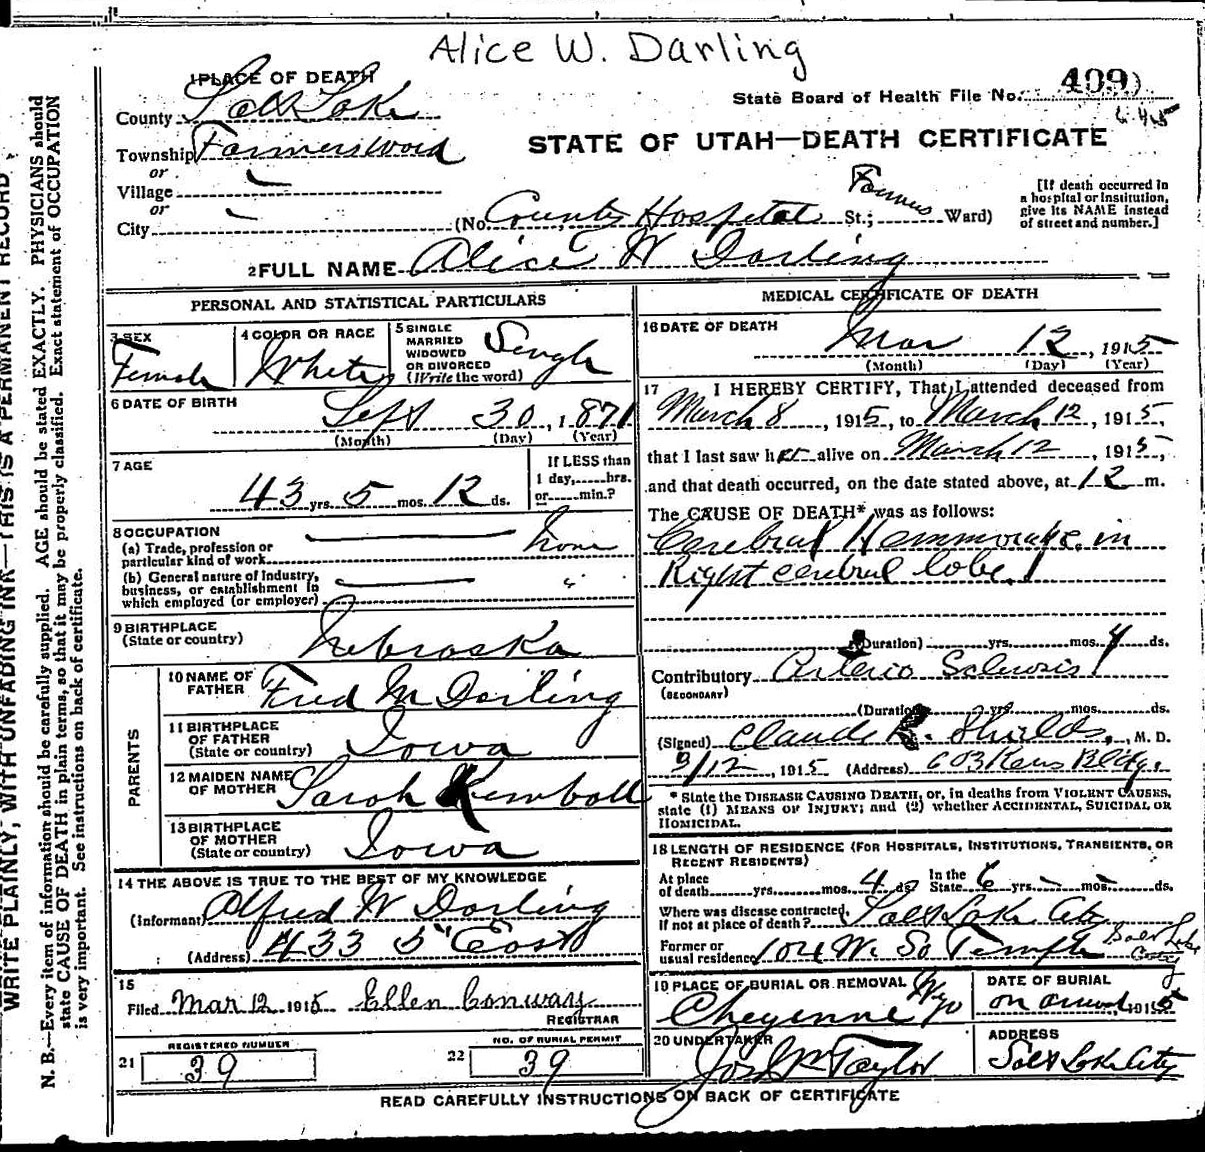 Alice W. Darling
1 PLACE OF DEATH
State Board of Health File No. 409
County Salt Lake
STATE OF UTAH—DEATH CERTIFICATE
Township Farmersward
or
Village
or
City (No. County Hospital St.; Farmers Ward)
[If death occurred in
a hospital or institution,
give its NAME instead
of street and number.]
2 FULL NAME Alice W Darling
PERSONAL AND STATISTICAL PARTICULARS
3 SEX
Female
4 COLOR OR RACE
White
5 SINGLE
MARRIED
WIDOWED
OR DIVORCED
(Write the word)
Single
6 DATE OF BIRTH
Sept 30, 1871
(Month) (Day) (Year)
7 AGE
43 yrs. 5 mos. 12 ds.
If LESS than
1 day,......hrs.
or......min.?
8 OCCUPATION
(a) Trade, profession or
particular kind of work none
(b) General nature of Industry,
business, or establishment in
which employed (or employer) "
9 BIRTHPLACE
(State or country) Nebraska
PARENTS
10 NAME OF
FATHER Fred M Darling
11 BIRTHPLACE
OF FATHER
(State or country) Iowa
12 MAIDEN NAME
OF MOTHER Sarah Kemball
13 BIRTHPLACE
OF MOTHER
(State or country) Iowa
14 THE ABOVE IS TRUE TO THE BEST OF MY KNOWLEDGE
(Informant) Alfred W Darling
(Address) 433 5" East
15
Filed Mar 12 1915 Ellen Conway
REGISTRAR
REGISTERED NUMBER
21 39
NO. OF BURIAL PERMIT
22 39
MEDICAL CERTIFICATE OF DEATH
16 DATE OF DEATH
Mar 12, 1915
(Month) (Day) (Year)
17 I HEREBY CERTIFY, That I attended deceased from
March 8, 1915, to March 12, 1915,
that I last saw her alive on March 12, 1915,
and that death occurred, on the date stated above, at 12 m.
The CAUSE OF DEATH* was as follows:
Cerebral Hemmorage in
Right cerebral lobe.
(Duration) yrs. mos. 4 ds.
Contributory Arterio Sclerosis
(SECONDARY)
(Duration) yrs. mos. ds.
(Signed) Claude R. Shields, M. D.
3/12, 1915 (Address) 603 Kerns Bldg.
* State the DISEASE CAUSING DEATH, or, in deaths from VIOLENT CAUSES,
state (1) MEANS OF INJURY; and (2) whether ACCIDENTAL, SUICIDAL OR
HOMICIDAL.
18 LENGTH OF RESIDENCE (FOR HOSPITALS, INSTITUTIONS, TRANSIENTS, OR
RECENT RESIDENTS)
At place
of death yrs. mos. 4 ds. In the
State 6 yrs. mos. ds.
Where was disease contracted,
If not at place of death? Salt Lake City
Former or
usual residence 104 W. So Temple Salt Lake City
19 PLACE OF BURIAL OR REMOVAL
Cheyenne Wyo
DATE OF BURIAL
on arrival, 1915
20 UNDERTAKER
Jos Wm Taylor
ADDRESS
Salt Lake City
READ CAREFULLY INSTRUCTIONS ON BACK OF CERTIFICATE
WRITE PLAINLY, WITH UNFADING INK—THIS IS A PERMANENT RECORD.
N. B.—Every item of information should be carefully supplied. AGE should be stated EXACTLY. PHYSICIANS should
state CAUSE OF DEATH in plain terms, so that it may be properly classified. Exact statement of OCCUPATION
is very important. See instructions on back of certificate.